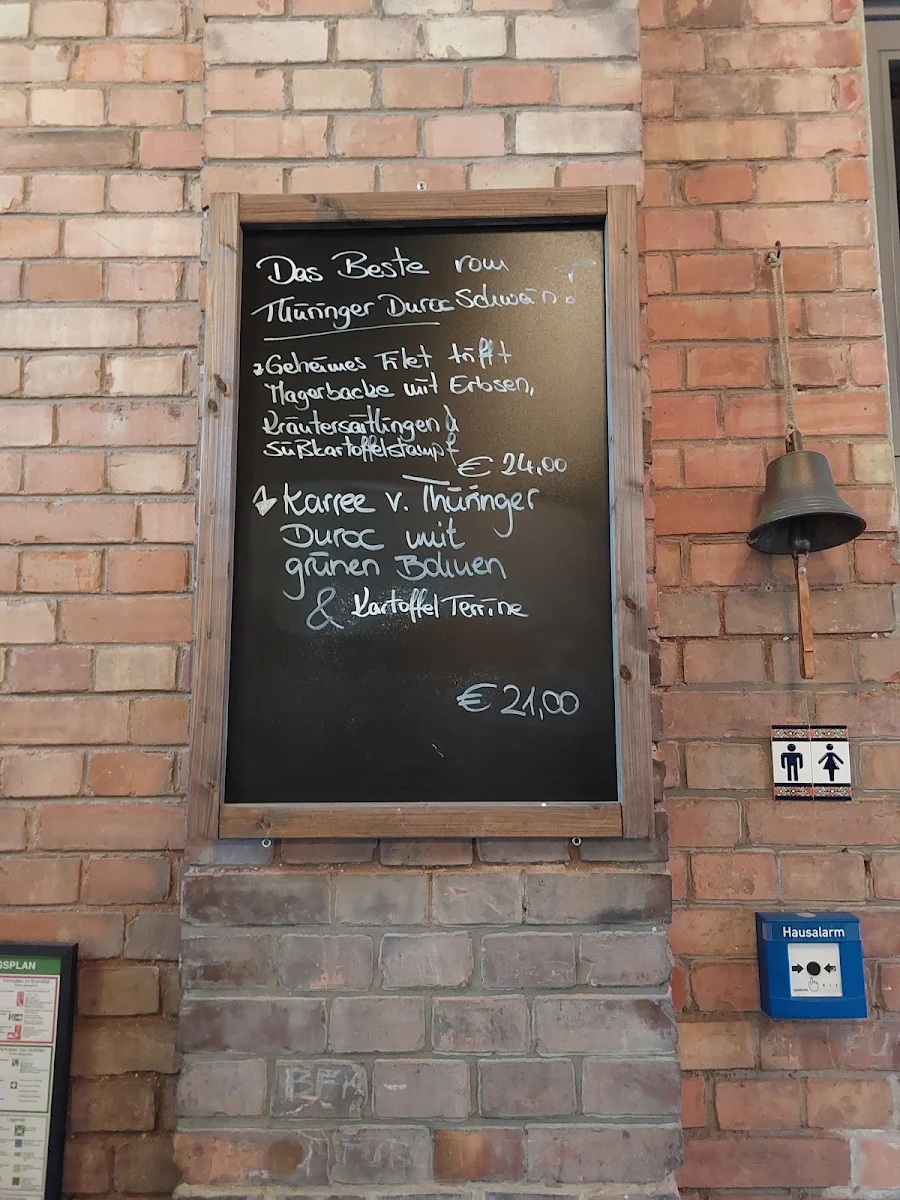 Das Beste vom
Thüringer Duroc Schwein!
Geheimes Filet trifft
Magerbacke mit Erbsen,
Kräutersaitlingen &
Süßkartoffelstampf
€ 24,00
Karree v. Thüringer
Duroc mit
grünen Bohnen
& Kartoffel Terrine
€ 21,00
Hausalarm
GSPLAN
BFK